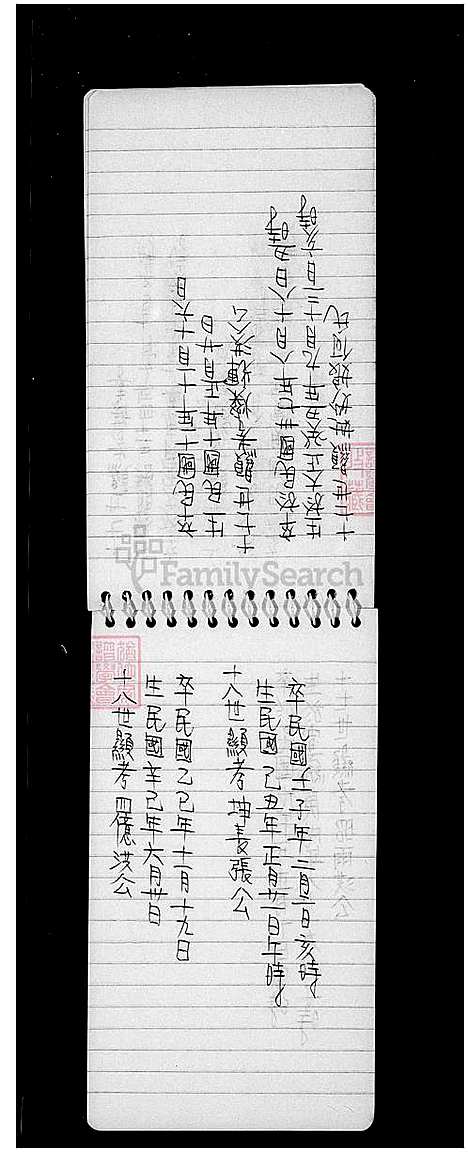 十七世顯妣妙娘何氏
生於大正癸丑年九月十二日亥時
卒於民國卅七年八月十八日丑時
十七世顯考燦輝洪公
生民國十年正月廿日
卒民國十一年十一月十六日
FamilySearch
十八世顯考四億洪公
生民國辛巳年六月廿日
卒民國乙巳年十二月十九日
十八世顯考坤長張公
生民國己丑年正月廿一日午時
卒民國壬子年二月三日亥時